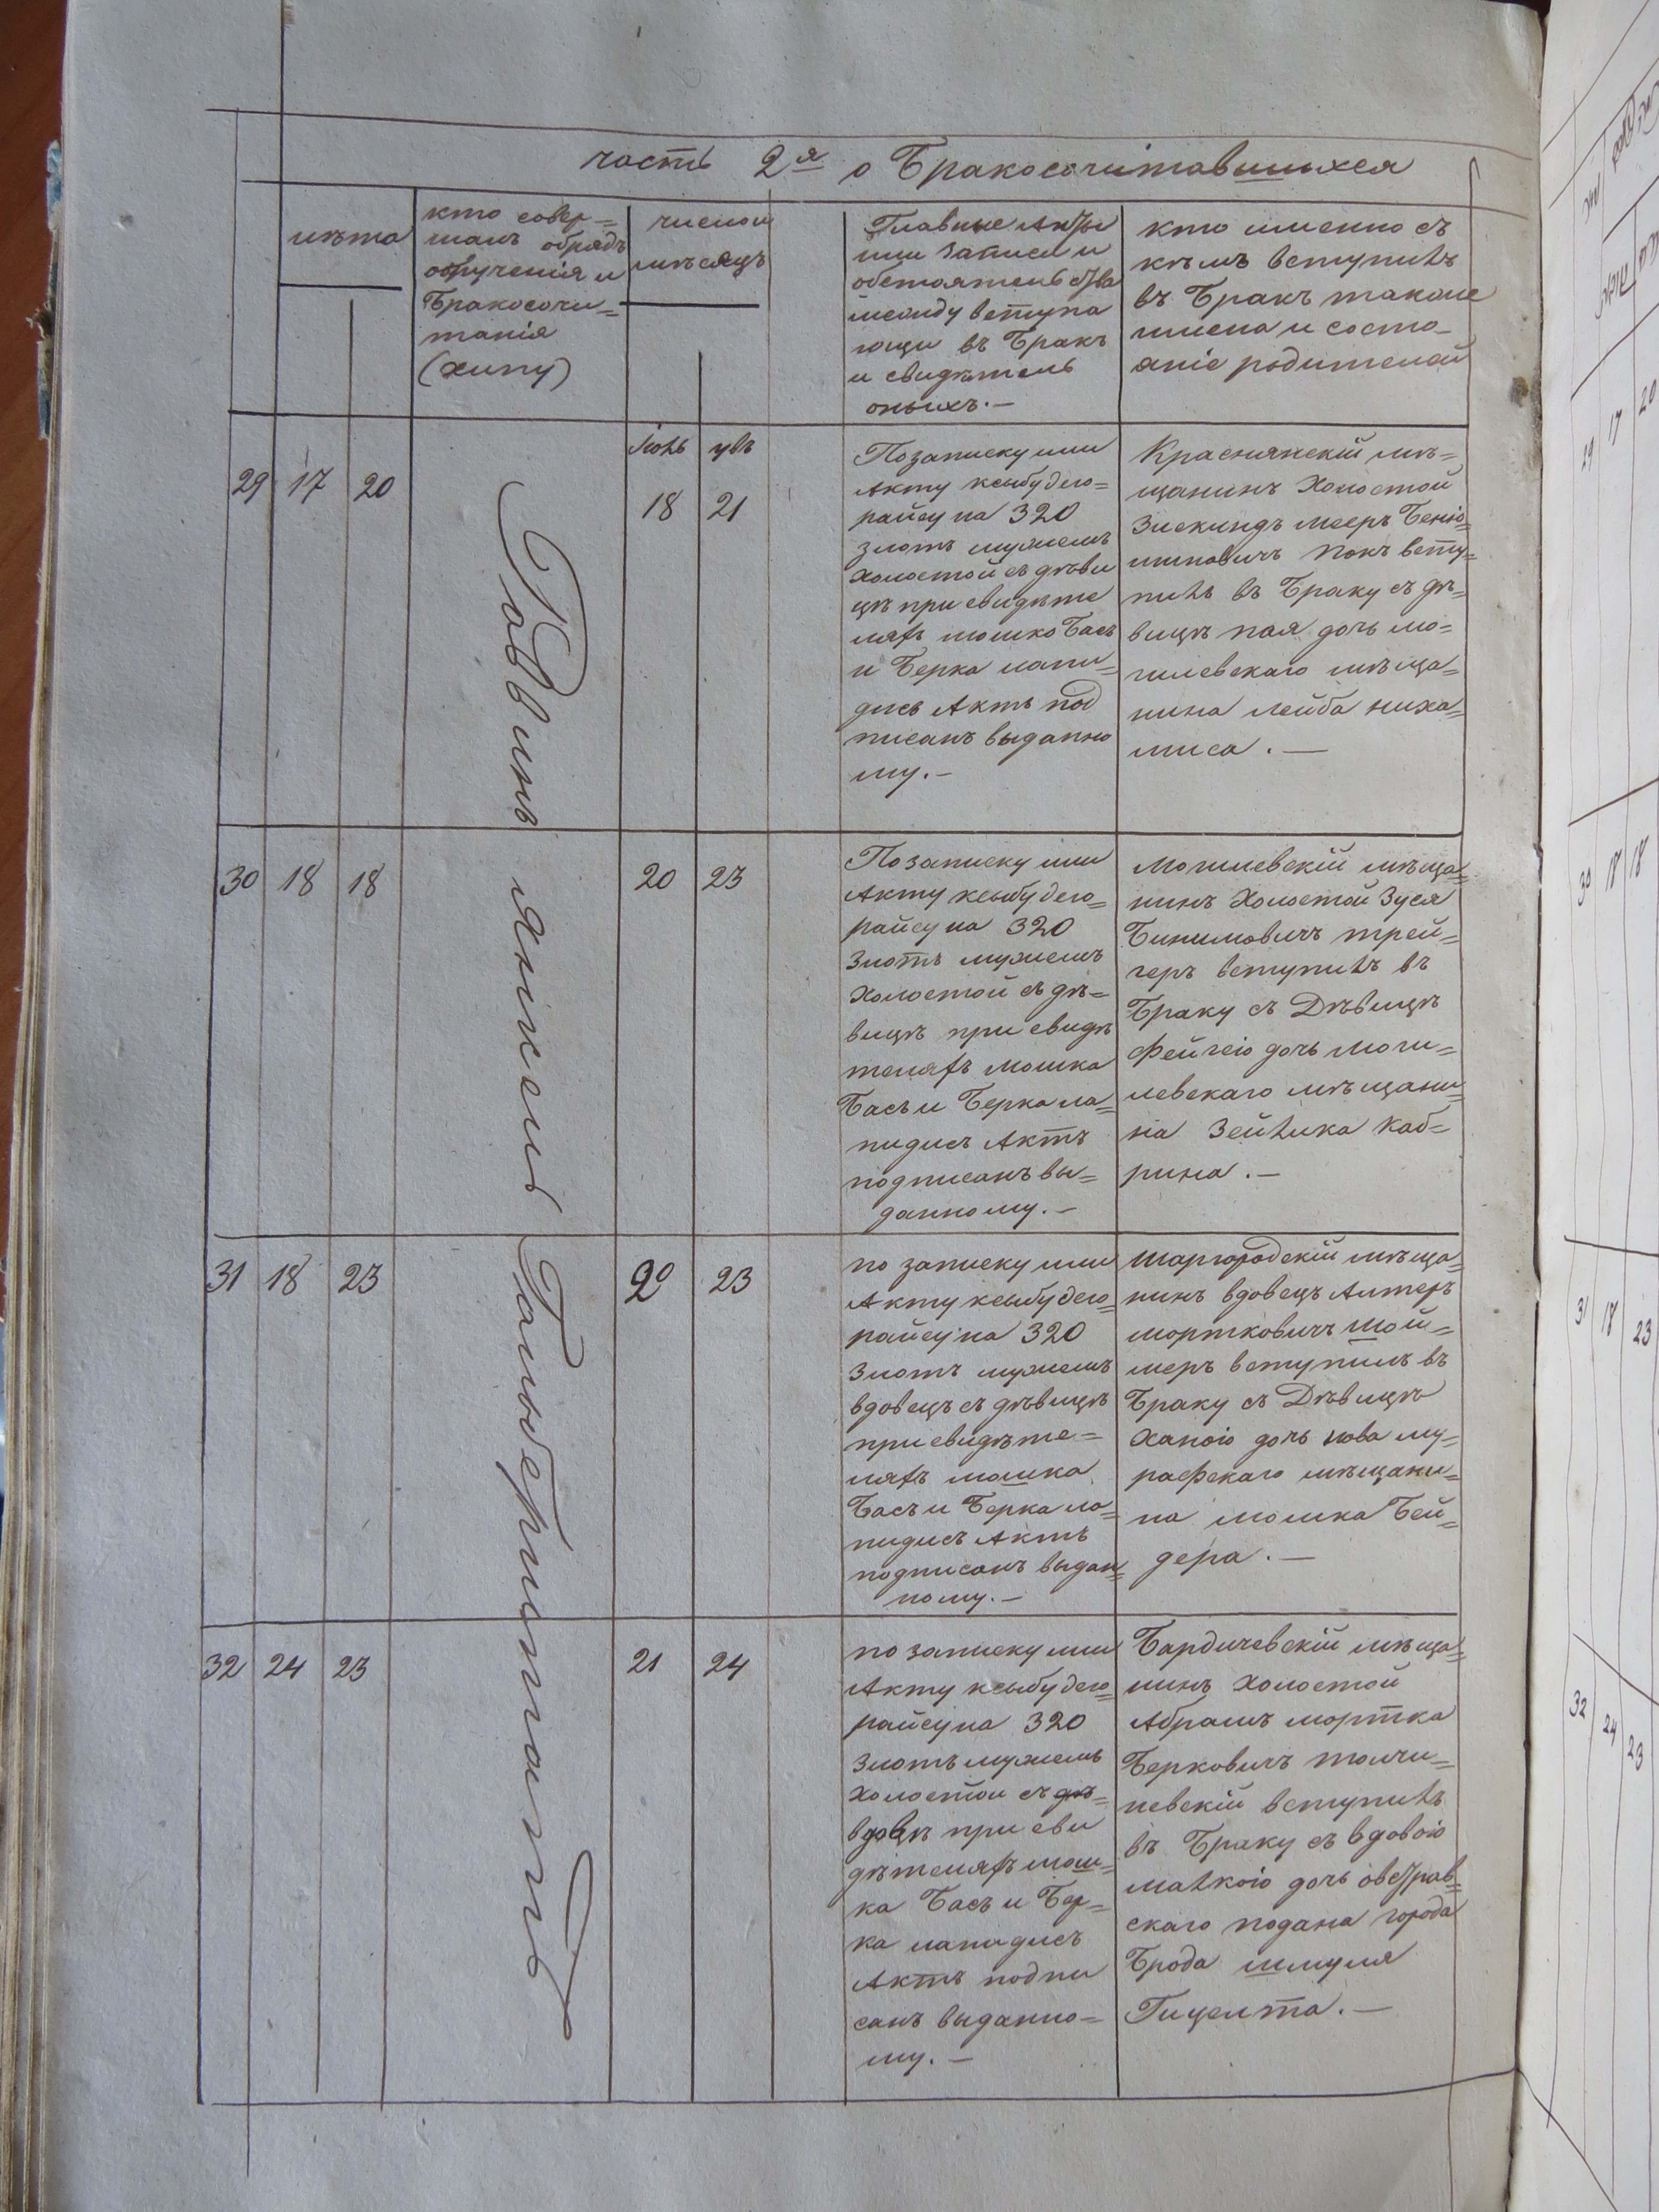 часть 2я о Бракосочитавшихся
лѣта
кто совер=
шалъ обрядъ
обрученія и
Бракосочи=
танія
(хипу)
число и
мѣсяцъ
Главные Акты
или записи и
обстоятельства
между вступа
ющи въ Бракъ
и свидѣтель
оныхъ.—
кто именно съ
кѣмъ вступилъ
въ Бракъ также
имена и состо=
яніе родителей
Раввинъ
29 17 20
18 21
По записку или
Акту ксыбудего=
райсу на 320
злотъ мужемъ
холостой съ дѣви
цѣ при свидѣте
ляхъ мошко Басъ
и Берка лапи=
дисъ Актъ под
писанъ выданно
му.—
Краснянскій мѣ=
щанинъ Холостой
Зискиндъ мееръ Беню=
миновичъ покъ всту=
пилъ въ Браку съ дѣ=
вицѣ пая дочь мо=
гилевскаго мѣща=
нина лейба ниха=
миса.—
30 18 18
20 23
По записку или
Акту ксыбудего=
райсу на 320
Злотъ мужемъ
Холостой съ дѣ=
вицѣ при свидѣ
теляхъ мошка
Басъ и Берка ла=
пидисъ Актъ
подписанъ вы=
данному.—
Могилевскій мѣща=
нинъ Холостой Зуся
Бинимовичъ трей=
геръ вступилъ въ
Браку съ Дѣвицѣ
Фейгею дочь моги=
левскаго мѣщани=
на Зейлика Каб=
рина.—
31 18 23
20 23
по записку или
Акту ксыбудего=
райсу на 320
Злотъ мужемъ
вдовецъ съ дѣвицѣ
при свидѣте=
ляхъ мошка
Басъ и Берка ла=
пидисъ Актъ
подписанъ выдан=
ному.—
шаргородскій мѣща=
нинъ вдовецъ Алтеръ
мортковичъ шой=
меръ вступилъ въ
Браку съ Дѣвицѣ
Ханою дочь нова му=
рафскаго мѣщани=
на мошка Бей=
дера.—
32 24 23
21 24
по записку или
Акту ксыбудего=
райсу на 320
Злотъ мужемъ
Холостой съ дѣ=
вдовцѣ при сви
дѣтеляхъ мош=
ка Басъ и Бер=
ка лапидисъ
Актъ подпи
санъ выданно=
му.—
Бардичевскій мѣща=
нинъ Холостой
Абрамъ мортка
Берковичъ толчи=
невскій вступилъ
въ Браку съ вдовою
малкою дочь овстрав=
скаго подана города
Брода шмуля
Гицелта.—
29 17 20
30 18 18
31 18 23
32 24 23